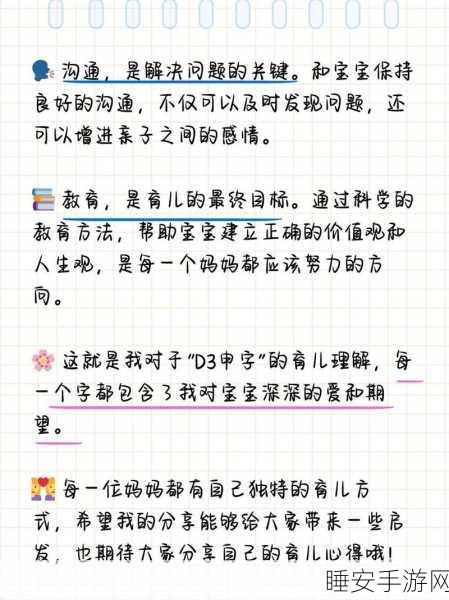 沟通，是解决问题的关键。和宝宝保持
良好的沟通，不仅可以及时发现问题，还
可以增进亲子之间的感情。
教育，是育儿的最终目标。通过科学的
教育方法，帮助宝宝建立正确的价值观和
人生观，是每一个妈妈都应该努力的方
向。
这就是我对于"D3申字"的育儿理解，每
一个字都包含了我对宝宝深深的爱和期
望。
每一位妈妈都有自己独特的育儿方
式，希望我的分享能够给大家带来一些启
发，也期待大家分享自己的育儿心得哦！
睡安手游网